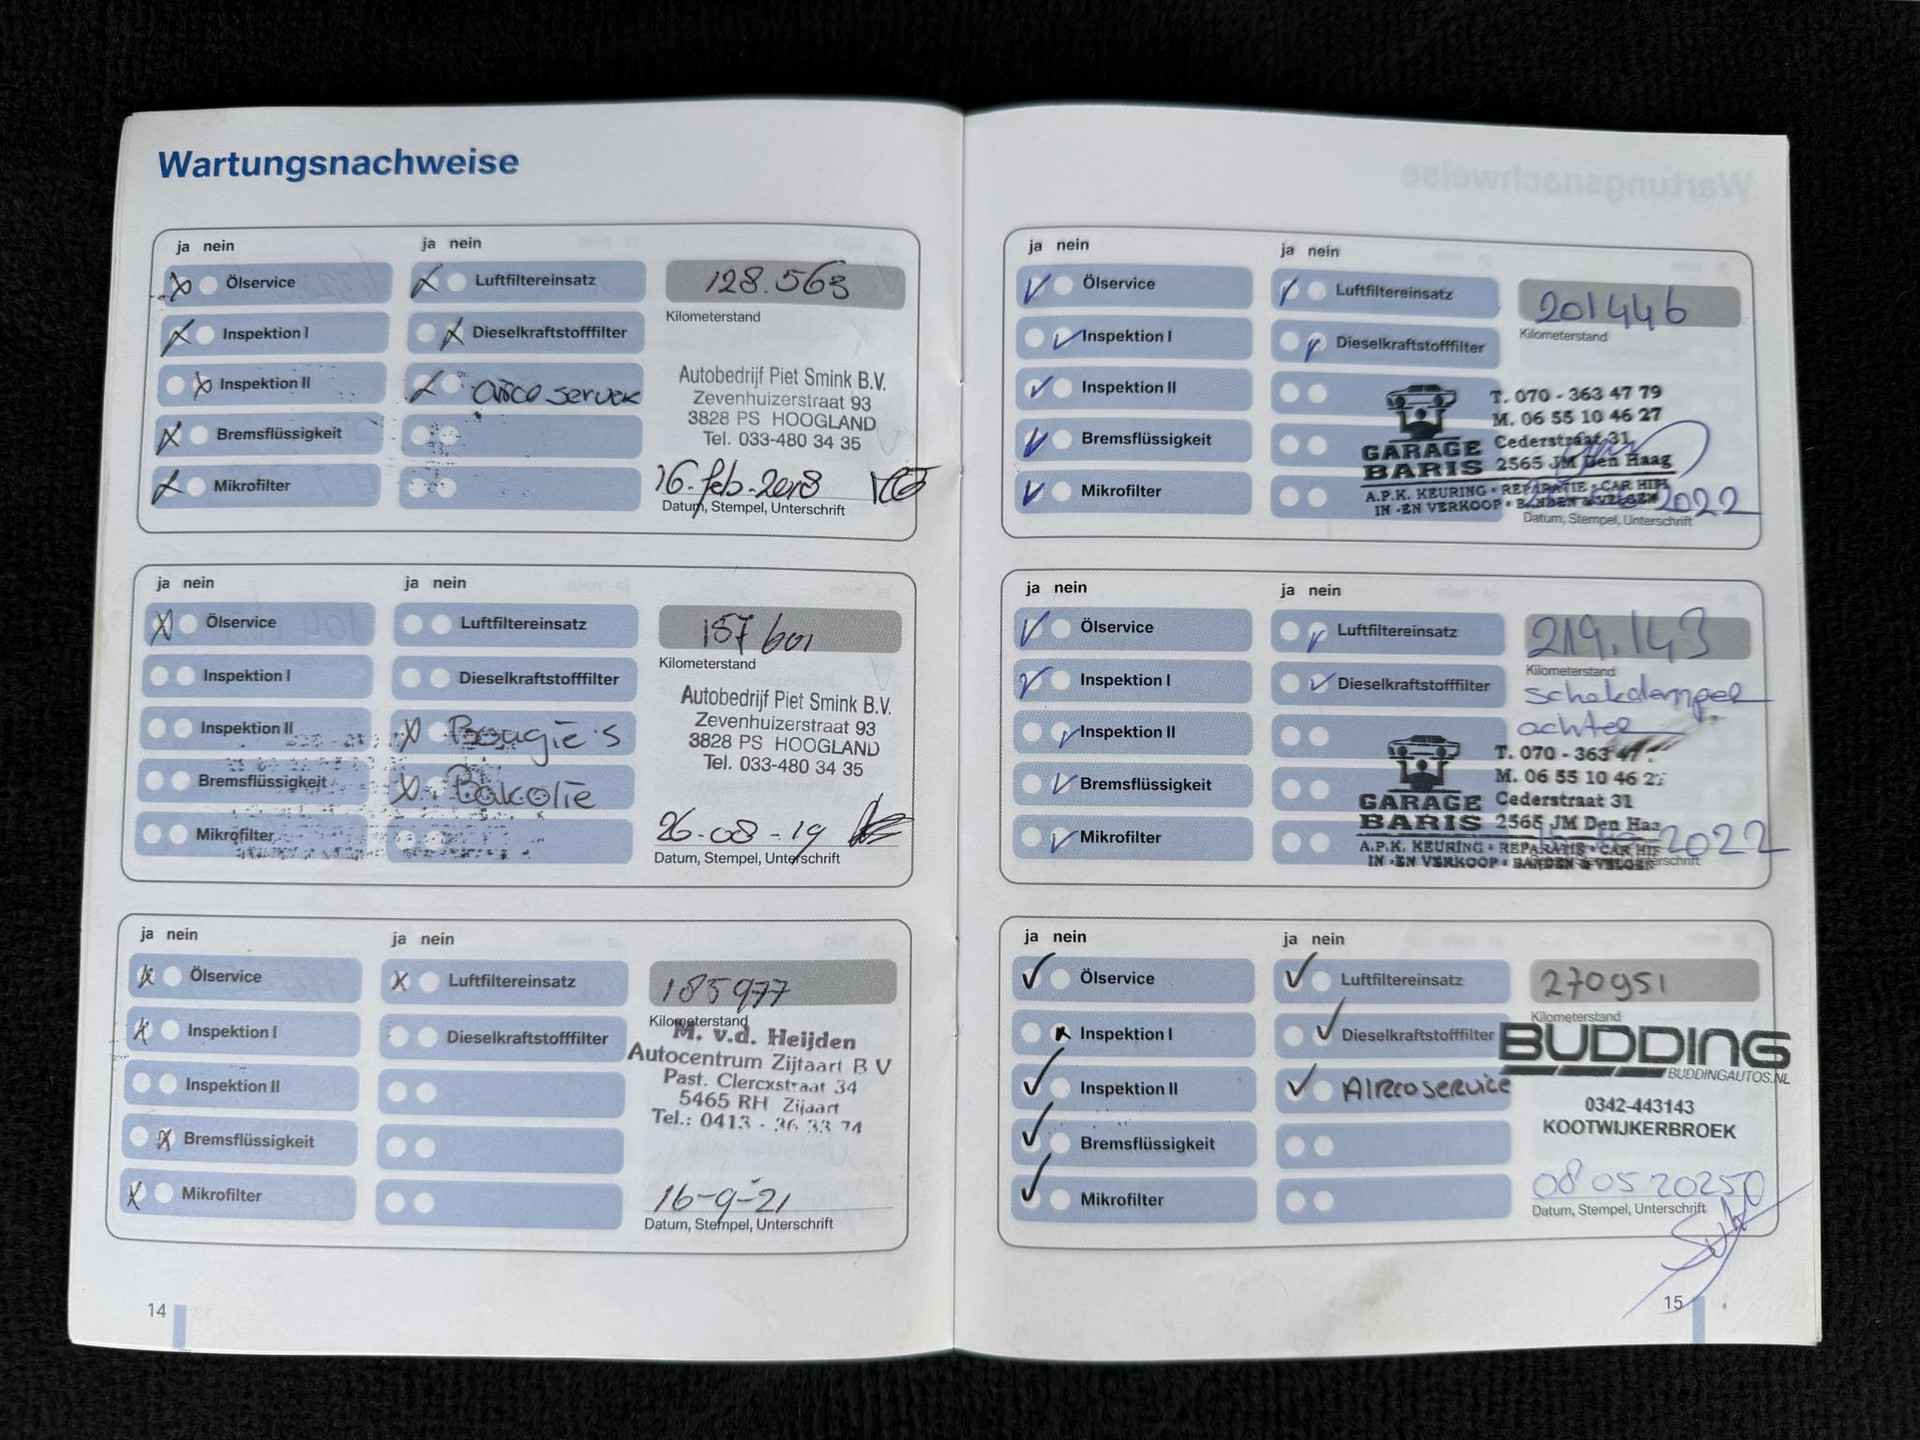 Wartungsnachweise
ja nein
ja nein
Ölservice
Luftfiltereinsatz
128.563
Kilometerstand
Inspektion I
Dieselkraftstofffilter
Inspektion II
Autobedrijf Piet Smink B.V.
Zevenhuizerstraat 93
3828 PS HOOGLAND
Tel. 033-480 34 35
Bremsflüssigkeit
Mikrofilter
16-feb-2018
Datum, Stempel, Unterschrift
ja nein
ja nein
Ölservice
Luftfiltereinsatz
157 601
Kilometerstand
Inspektion I
Dieselkraftstofffilter
Inspektion II
Bougie's
Autobedrijf Piet Smink B.V.
Zevenhuizerstraat 93
3828 PS HOOGLAND
Tel. 033-480 34 35
Bremsflüssigkeit
Bakolie
Mikrofilter
26-08-19
Datum, Stempel, Unterschrift
ja nein
ja nein
Ölservice
Luftfiltereinsatz
185977
Kilometerstand
Inspektion I
Dieselkraftstofffilter
M. v.d. Heijden
Autocentrum Zijtaart B V
Past. Clercxstraat 34
5465 RH Zijaart
Tel.: 0413 - 36 33 74
Inspektion II
Bremsflüssigkeit
Mikrofilter
16-9-21
Datum, Stempel, Unterschrift
14
ja nein
ja nein
Ölservice
Luftfiltereinsatz
201446
Kilometerstand
Inspektion I
Dieselkraftstofffilter
Inspektion II
Bremsflüssigkeit
Mikrofilter
GARAGE
BARIS
T. 070 - 363 47 79
M. 06 55 10 46 27
Cederstraat 31
2565 JM Den Haag
A.P.K. KEURING • REPARATIE • CAR HIFI
IN -EN VERKOOP • BANDEN & VELGEN
2022
Datum, Stempel, Unterschrift
ja nein
ja nein
Ölservice
Luftfiltereinsatz
219.143
Kilometerstand
Inspektion I
Dieselkraftstofffilter
schokdemper
achter
Inspektion II
Bremsflüssigkeit
Mikrofilter
GARAGE
BARIS
T. 070 - 363 47
M. 06 55 10 46 27
Cederstraat 31
2565 JM Den Haa
A.P.K. KEURING • REPARATIE • CAR HIF
IN -EN VERKOOP • BANDEN & VELGEN
2022
ja nein
ja nein
Ölservice
Luftfiltereinsatz
270951
Kilometerstand
Inspektion I
Dieselkraftstofffilter
BUDDING
BUDDINGAUTOS.NL
Inspektion II
Aircoservice
0342-443143
KOOTWIJKERBROEK
Bremsflüssigkeit
Mikrofilter
08 05 2025
Datum, Stempel, Unterschrift
15